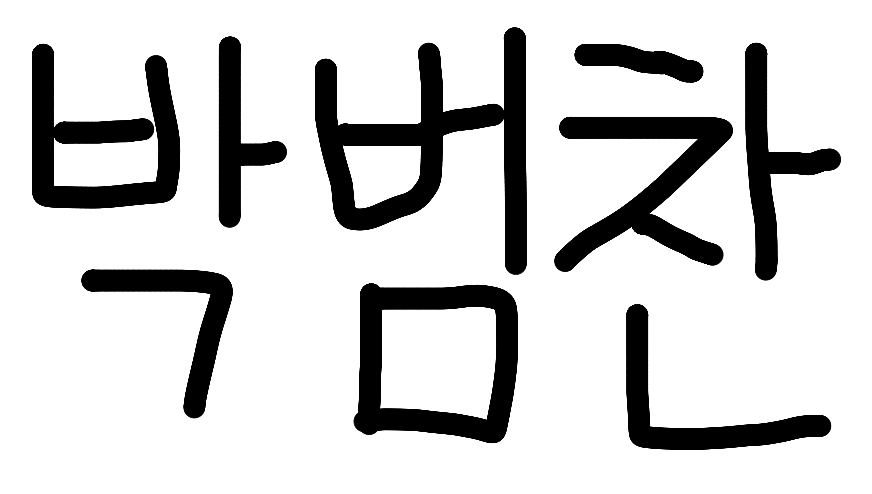 박범찬